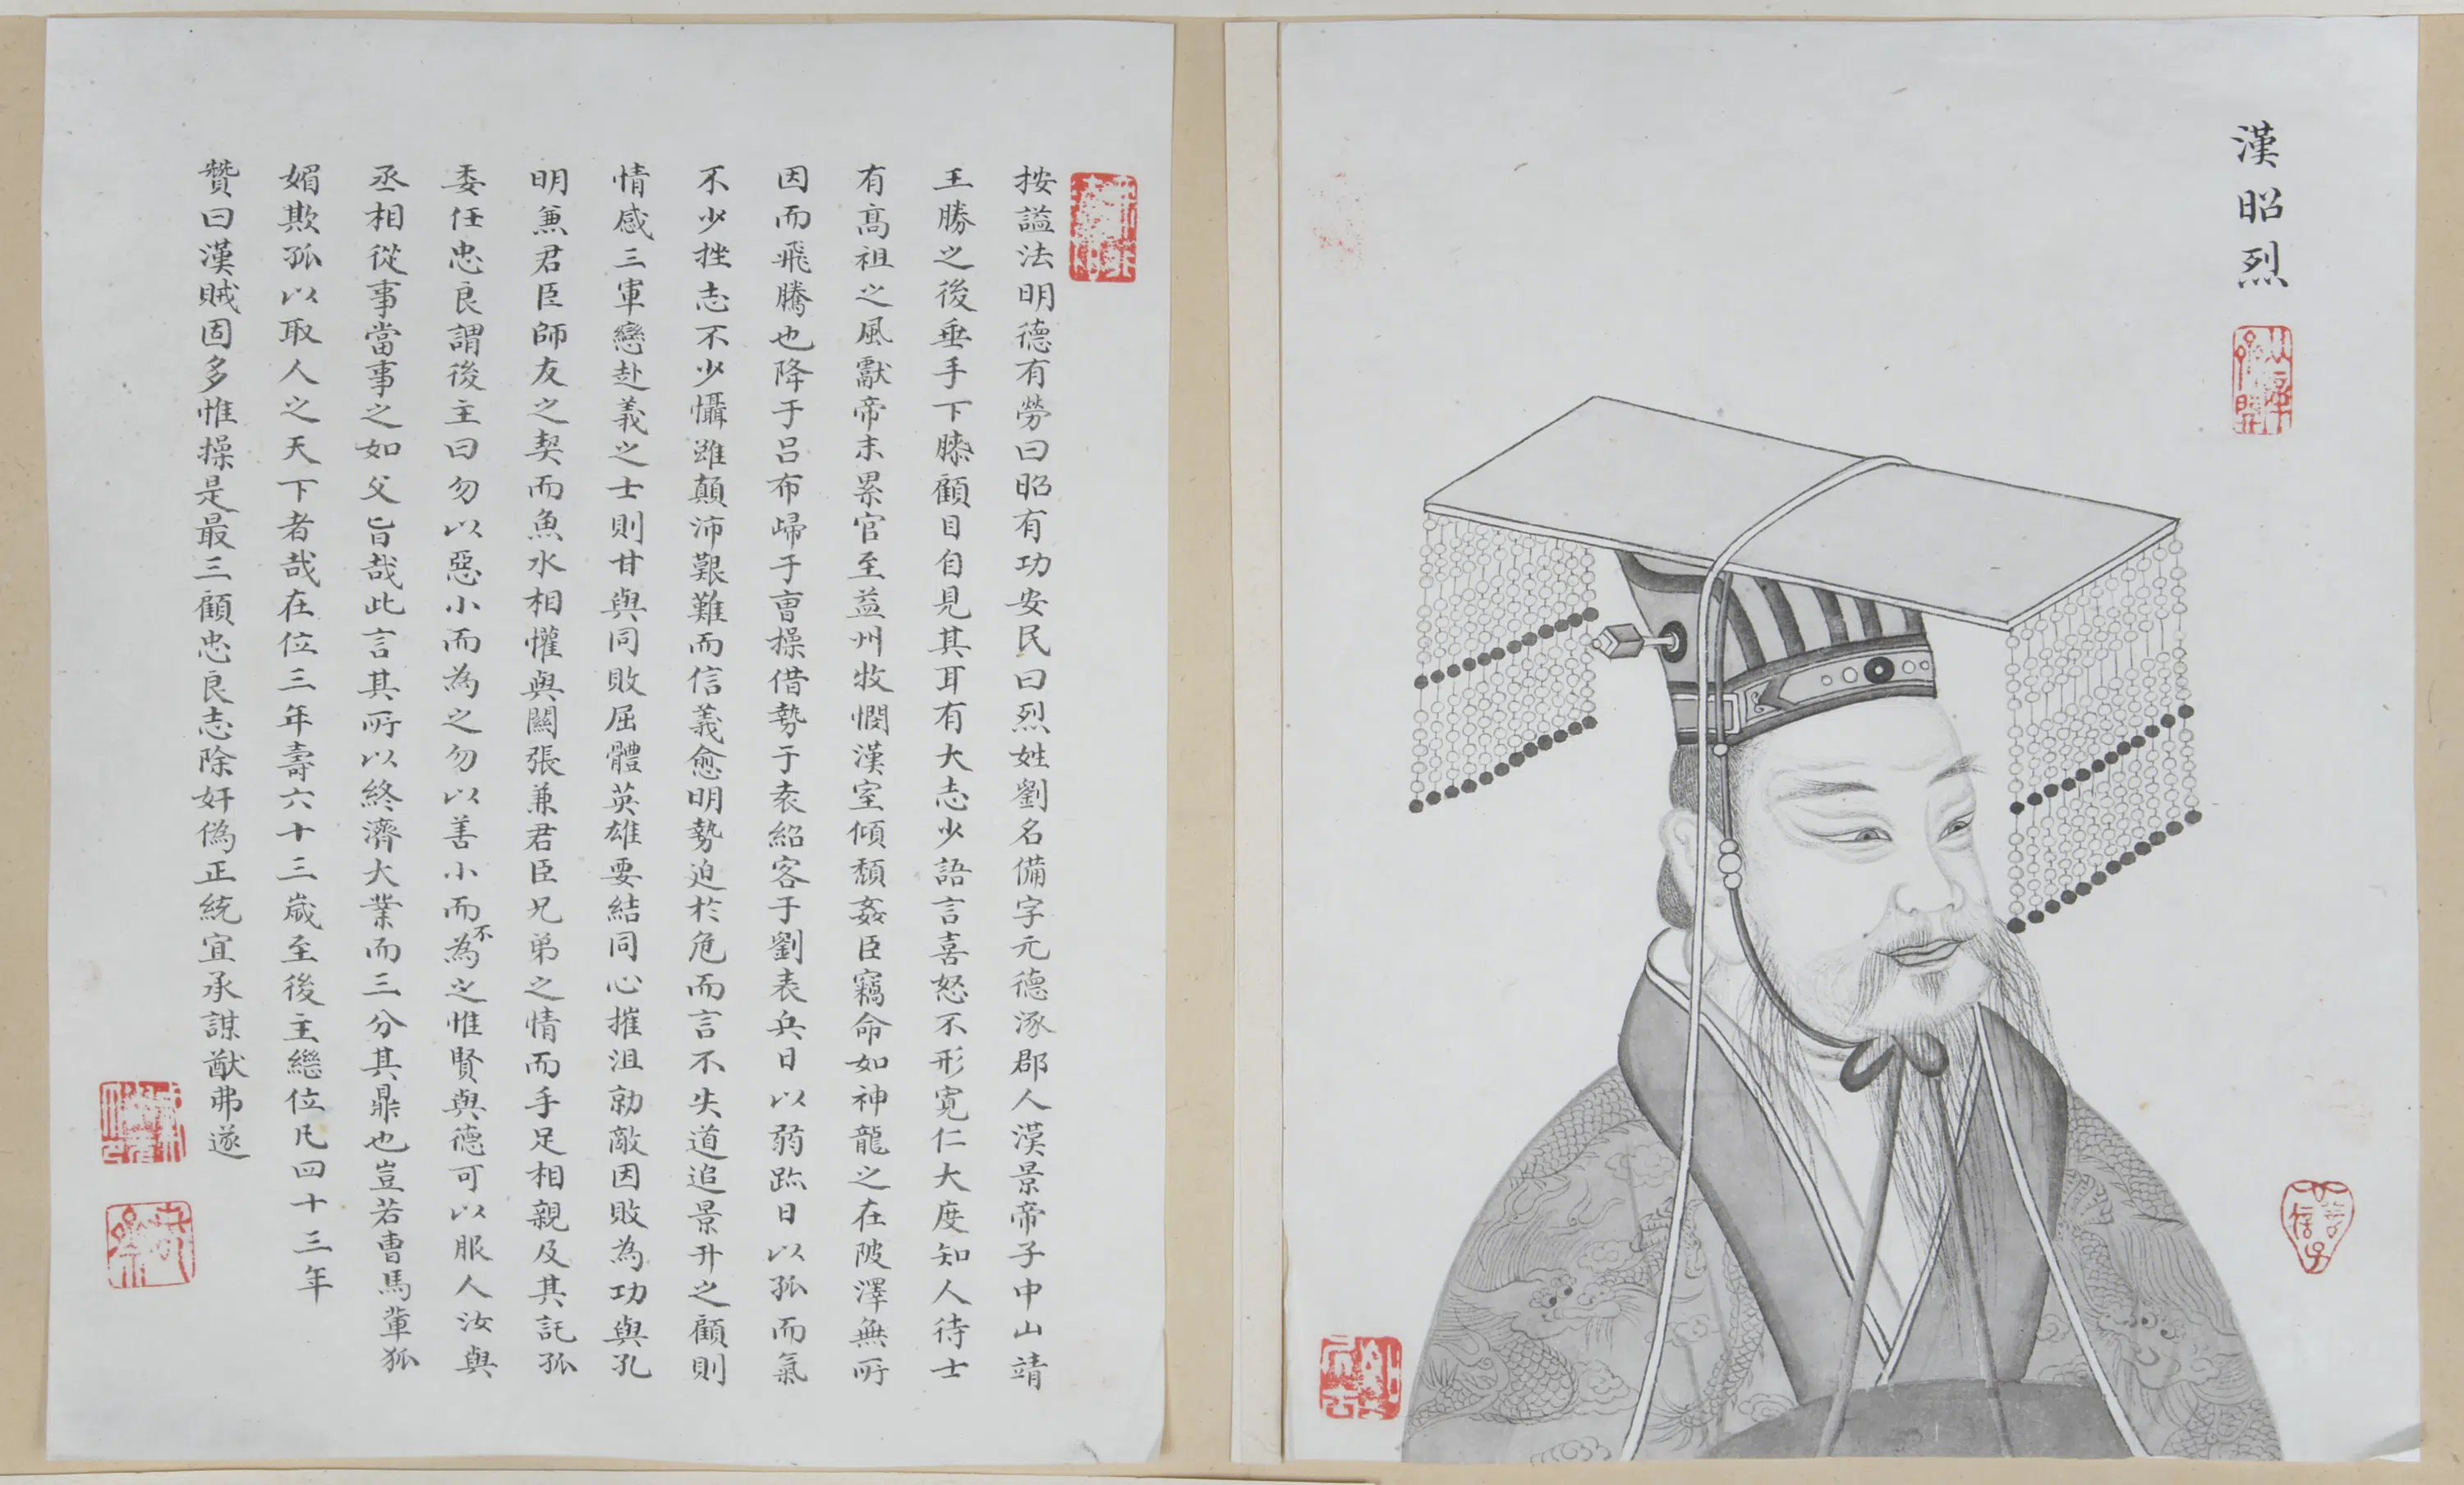 漢昭烈
按謚法明德有勞曰昭有功安民曰烈姓劉名備字元德涿郡人漢景帝子中山靖
王勝之後垂手下膝顧目自見其耳有大志少語言喜怒不形寬仁大度知人待士
有高祖之風獻帝末累官至益州牧憫漢室傾頹姦臣竊命如神龍之在陂澤無所
因而飛騰也降于呂布歸于曹操借勢于袁紹客于劉表兵日以弱跡日以孤而氣
不少挫志不少懾雖顛沛艱難而信義愈明勢迫於危而言不失道追景升之顧則
情感三軍戀赴義之士則甘與同敗屈體英雄要結同心摧沮勍敵因敗為功與孔
明兼君臣師友之契而魚水相懽與關張兼君臣兄弟之情而手足相親及其託孤
委任忠良謂後主曰勿以惡小而為之勿以善小而不為之惟賢與德可以服人汝與
丞相從事當事之如父旨哉此言其所以終濟大業而三分其鼎也豈若曹馬輩狐
媚欺孤以取人之天下者哉在位三年壽六十三歲至後主繼位凡四十三年
贊曰漢賊固多惟操是最三顧忠良志除奸偽正統宜承謀猷弗遂